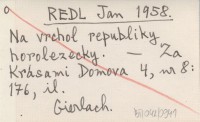 REDL Jan 1958.
Na vrchol republiky
horolezecky. — Za
Krásami Domova 4, nr 8:
176, il.
Gierlach.